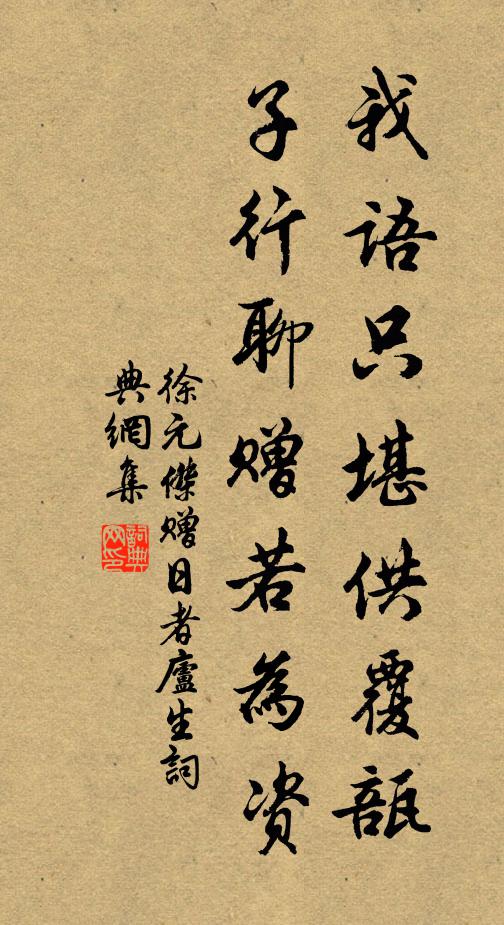 我语只堪供覆瓿
子行聊赠若為资
徐元傑赠日者廬生詞
典網集
詞典
网印